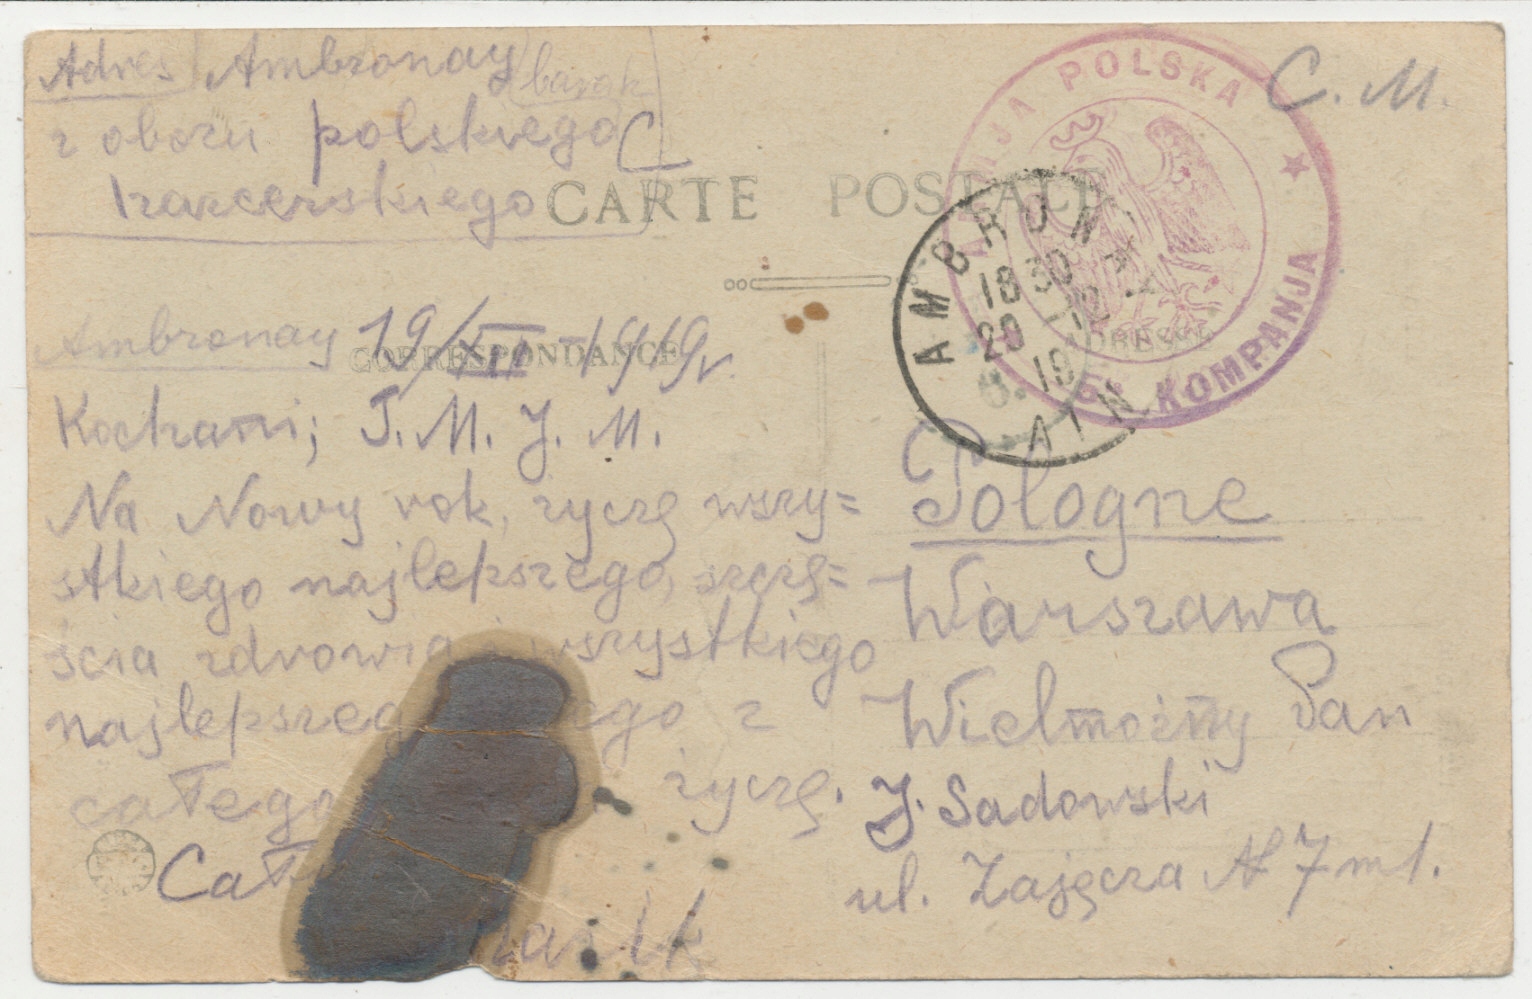 Adres Ambronay
barak
z obozu polskiego C
harcerskiego
CARTE POSTALE
C. M.
POLSKA
KOMPANJA
AMBRONAY
18 30
20 -12
19
AIN
CORRESPONDANCE
ADRESSE
Ambronay 19/XII - 1919 r.
Kochani; T. M. J. M.
Na Nowy rok, życzę wszy=
stkiego najlepszego, szczę=
ścia zdrowia i wszystkiego
najlepszeg ego z
całego życzę.
Cał
Pologne
Warszawa
Wielmożny Pan
J. Sadowski
ul. Zajęcza № 7 m 1.